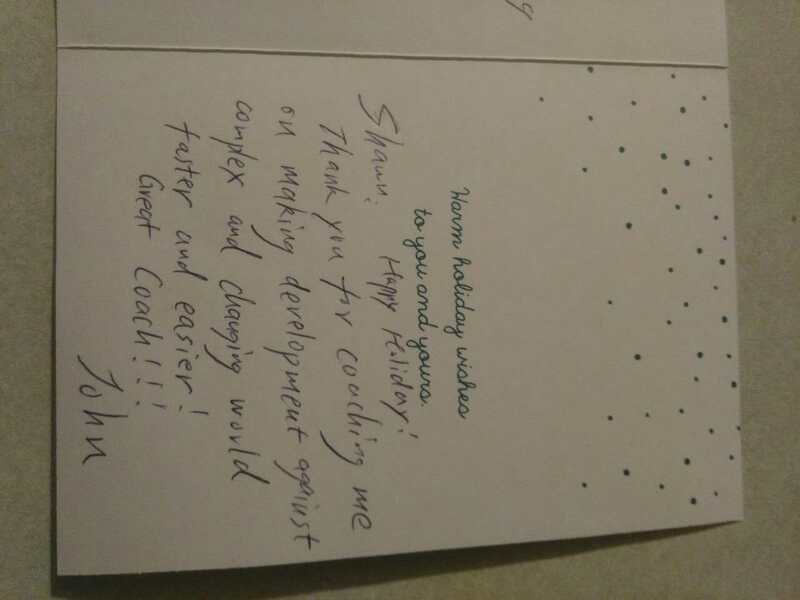 Warm holiday wishes
to you and yours.
Shawn.
Happy Holiday!
Thank you for coaching me
on making development against
complex and changing world
faster and easier!
Great Coach!!!
John